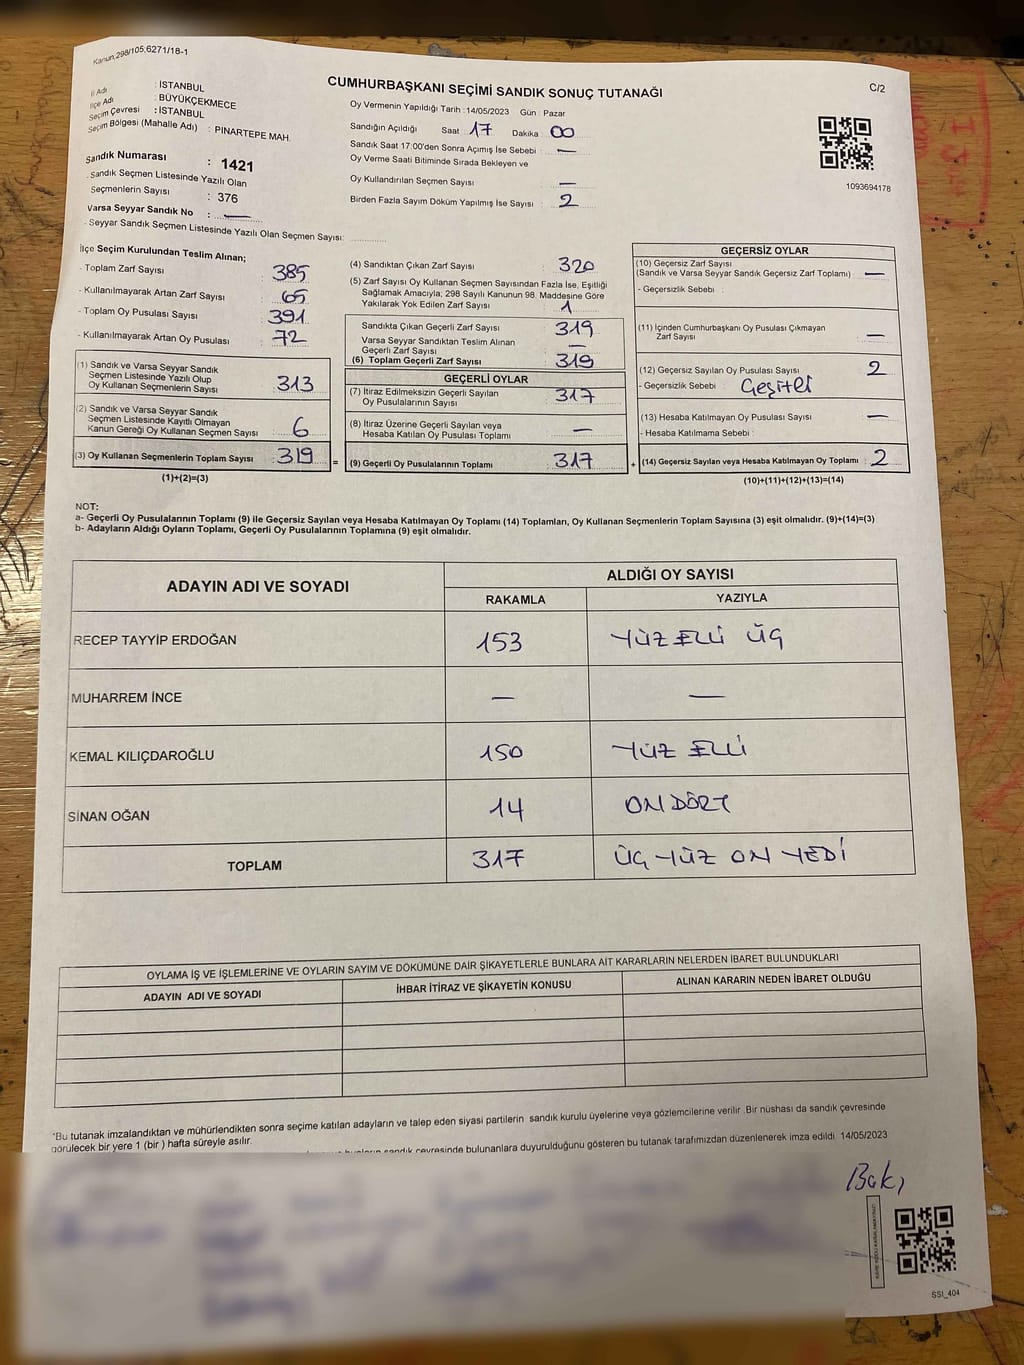 Kanun,298/105,6271/18-1
CUMHURBAŞKANI SEÇİMİ SANDIK SONUÇ TUTANAĞI
C/2
İl Adı : İSTANBUL
İlçe Adı : BÜYÜKÇEKMECE
Seçim Çevresi : İSTANBUL
Seçim Bölgesi (Mahalle Adı) : PINARTEPE MAH.
Sandık Numarası : 1421
Sandık Seçmen Listesinde Yazılı Olan
Seçmenlerin Sayısı : 376
Varsa Seyyar Sandık No : —
- Seyyar Sandık Seçmen Listesinde Yazılı Olan Seçmen Sayısı: ............
Oy Vermenin Yapıldığı Tarih : 14/05/2023 Gün : Pazar
Sandığın Açıldığı Saat 17 Dakika : 00
Sandık Saat 17:00'den Sonra Açımış İse Sebebi : —
Oy Verme Saati Bitiminde Sırada Bekleyen ve
Oy Kullandırılan Seçmen Sayısı : —
Birden Fazla Sayım Döküm Yapılmış İse Sayısı : 2
1093694178
İlçe Seçim Kurulundan Teslim Alınan;
- Toplam Zarf Sayısı : 385
- Kullanılmayarak Artan Zarf Sayısı : 65
- Toplam Oy Pusulası Sayısı : 391
- Kullanılmayarak Artan Oy Pusulası : 72
(1) Sandık ve Varsa Seyyar Sandık
Seçmen Listesinde Yazılı Olup
Oy Kullanan Seçmenlerin Sayısı : 313
(2) Sandık ve Varsa Seyyar Sandık
Seçmen Listesinde Kayıtlı Olmayan
Kanun Gereği Oy Kullanan Seçmen Sayısı : 6
(3) Oy Kullanan Seçmenlerin Toplam Sayısı : 319
(1)+(2)=(3)
(4) Sandıktan Çıkan Zarf Sayısı : 320
(5) Zarf Sayısı Oy Kullanan Seçmen Sayısından Fazla İse, Eşitliği
Sağlamak Amacıyla; 298 Sayılı Kanunun 98. Maddesine Göre
Yakılarak Yok Edilen Zarf Sayısı : 1
Sandıkta Çıkan Geçerli Zarf Sayısı : 319
Varsa Seyyar Sandıktan Teslim Alınan
Geçerli Zarf Sayısı : —
(6) Toplam Geçerli Zarf Sayısı : 319
GEÇERLİ OYLAR
(7) İtiraz Edilmeksizin Geçerli Sayılan
Oy Pusulalarının Sayısı : 317
(8) İtiraz Üzerine Geçerli Sayılan veya
Hesaba Katılan Oy Pusulası Toplamı : —
= (9) Geçerli Oy Pusulalarının Toplamı : 317
GEÇERSİZ OYLAR
(10) Geçersiz Zarf Sayısı
(Sandık ve Varsa Seyyar Sandık Geçersiz Zarf Toplamı) : —
- Geçersizlik Sebebi :
(11) İçinden Cumhurbaşkanı Oy Pusulası Çıkmayan
Zarf Sayısı : —
(12) Geçersiz Sayılan Oy Pusulası Sayısı : 2
- Geçersizlik Sebebi : Çeşitli
(13) Hesaba Katılmayan Oy Pusulası Sayısı : —
- Hesaba Katılmama Sebebi :
+ (14) Geçersiz Sayılan veya Hesaba Katılmayan Oy Toplamı : 2
(10)+(11)+(12)+(13)=(14)
NOT:
a- Geçerli Oy Pusulalarının Toplamı (9) ile Geçersiz Sayılan veya Hesaba Katılmayan Oy Toplamı (14) Toplamları, Oy Kullanan Seçmenlerin Toplam Sayısına (3) eşit olmalıdır. (9)+(14)=(3)
b- Adayların Aldığı Oyların Toplamı, Geçerli Oy Pusulalarının Toplamına (9) eşit olmalıdır.
ADAYIN ADI VE SOYADI
ALDIĞI OY SAYISI
RAKAMLA YAZIYLA
RECEP TAYYİP ERDOĞAN 153 YÜZ ELLİ ÜÇ
MUHARREM İNCE — —
KEMAL KILIÇDAROĞLU 150 YÜZ ELLİ
SİNAN OĞAN 14 ON DÖRT
TOPLAM 317 ÜÇ YÜZ ON YEDİ
OYLAMA İŞ VE İŞLEMLERİNE VE OYLARIN SAYIM VE DÖKÜMÜNE DAİR ŞİKAYETLERLE BUNLARA AİT KARARLARIN NELERDEN İBARET BULUNDUKLARI
ADAYIN ADI VE SOYADI İHBAR İTİRAZ VE ŞİKAYETİN KONUSU ALINAN KARARIN NEDEN İBARET OLDUĞU
*Bu tutanak imzalandıktan ve mühürlendikten sonra seçime katılan adayların ve talep eden siyasi partilerin sandık kurulu üyelerine veya gözlemcilerine verilir .Bir nüshası da sandık çevresinde
görülecek bir yere 1 (bir ) hafta süreyle asılır.
sandık çevresinde bulunanlara duyurulduğunu gösteren bu tutanak tarafımızdan düzenlenerek imza edildi. 14/05/2023
SSI_404